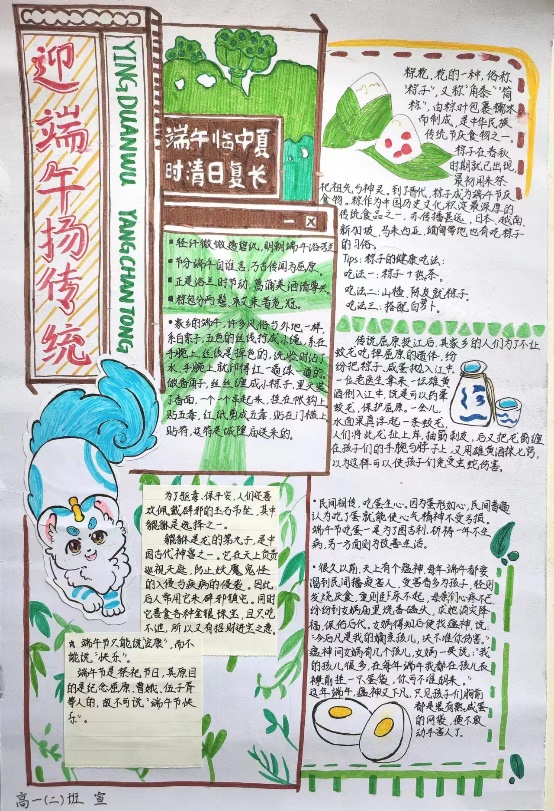 迎端午扬传统
YING DUANWU YANG CHAN TONG
端午临中夏
时清日复长
粽籺，籺的一种，俗称
"粽子"，又称"角黍""筒
粽"，由粽叶包裹糯米
而制成，是中华民族
传统节庆食物之一。
粽子在春秋
时期就已出现，
最初用来祭
祀祖先与神灵。到了晋代，粽子成为端午节庆
食物。粽作为中国历史文化积淀最深厚的
传统食品之一，亦传播甚远，日本、越南、
新加坡、马来西亚、缅甸等地也有吃粽子
的习俗。
Tips：粽子的健康吃法：
吃法一：粽子+热茶。
吃法二：山楂、陈皮就粽子。
吃法三：搭配白萝卜。
轻汗微微透碧纨，明朝端午浴芳兰
节分端午自谁言，万古传闻为屈原。
正是浴兰时节动，菖蒲美酒清尊共。
粽包分两髻，艾束著危冠。
家乡的端午，许多风俗与外地一样，
系百索子，五色的丝线拧成小绳，系在
手腕上，丝线是掉色的，洗脸时沾了
水，手腕上就印得红一道绿一道的。
做香角子，丝丝缠成小粽子，里头装
了香面，一个一个串起来，挂在帐钩上
贴五毒，红纸剪成五毒，贴在门槛上
贴符，这符是城隍庙送来的。
传统屈原投江后，其家乡的人们为了不让
蛟龙吃掉屈原的遗体，纷
纷把粽子、咸蛋抛入江中。
一位老医生拿来一坛雄黄
酒倒入江中，说是可以药晕
蛟龙，保护屈原。一会儿，
水面果真浮起一条蛟龙。
人们将此龙扯上岸，抽筋剥皮，后又把龙筋缠
在孩子们的手腕与脖子上，又用雄黄酒抹七窍，
以为这样可以使孩子们免受虫蛇伤害。
为了驱毒，保平安，人们还喜
欢佩戴辟邪的玉石吊坠，其中
貔貅是选择之一。
貔貅是龙的第九子，是中
国古代神兽之一。它在天上负责
巡视天庭，防止妖魔鬼怪
的入侵与疾病的侵袭。因此，
后人常用它来辟邪镇宅。同时
它喜食各种金银珠宝，且只吃
不泄，所以又有招财进宝之意。
端午节只能说"安康"，而不
能说"快乐"。
端午节是祭祀节日，其原目
的是纪念屈原、曹娥、伍子胥
等人的，故不可说"端午节快
乐"。
民间相传，吃蛋生心，因为蛋形如心，民间普遍
认为吃了蛋就能使心气精神不受亏损。
端午节吃蛋一是为了图吉利，祈祷一年不生
病，另一方面则为改善生活。
很久以前，天上有个瘟神，每年端午都要
溜到民间播疫害人，受害者多为孩子，轻则
发烧厌食，重则卧床不起，母亲们心疼不已，
纷纷到女娲庙里烧香磕头，求她消灾降
福，保佑后代。女娲得知后便找瘟神，说：
"今后凡是我的嫡亲孩儿，决不准你伤害。"
瘟神问女娲有几个孩儿，女娲一笑说："我
的孩儿很多，在每年端午我都在孩儿衣
襟前挂一下蛋袋，你可不准胡来。"
这年端午，瘟神又下凡，只见孩子们胸前
都是装有熟咸蛋
的网袋，便不敢
动手害人了。
高一(二)班 宣